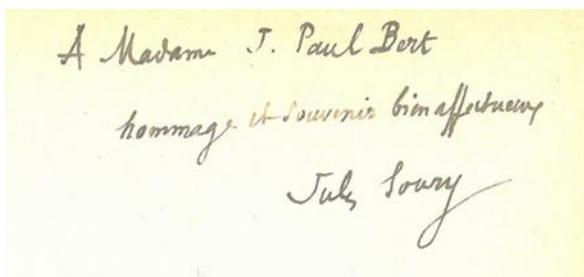 À Madame J. Paul Bert
hommage et souvenir bien affectueux
Jules Soury